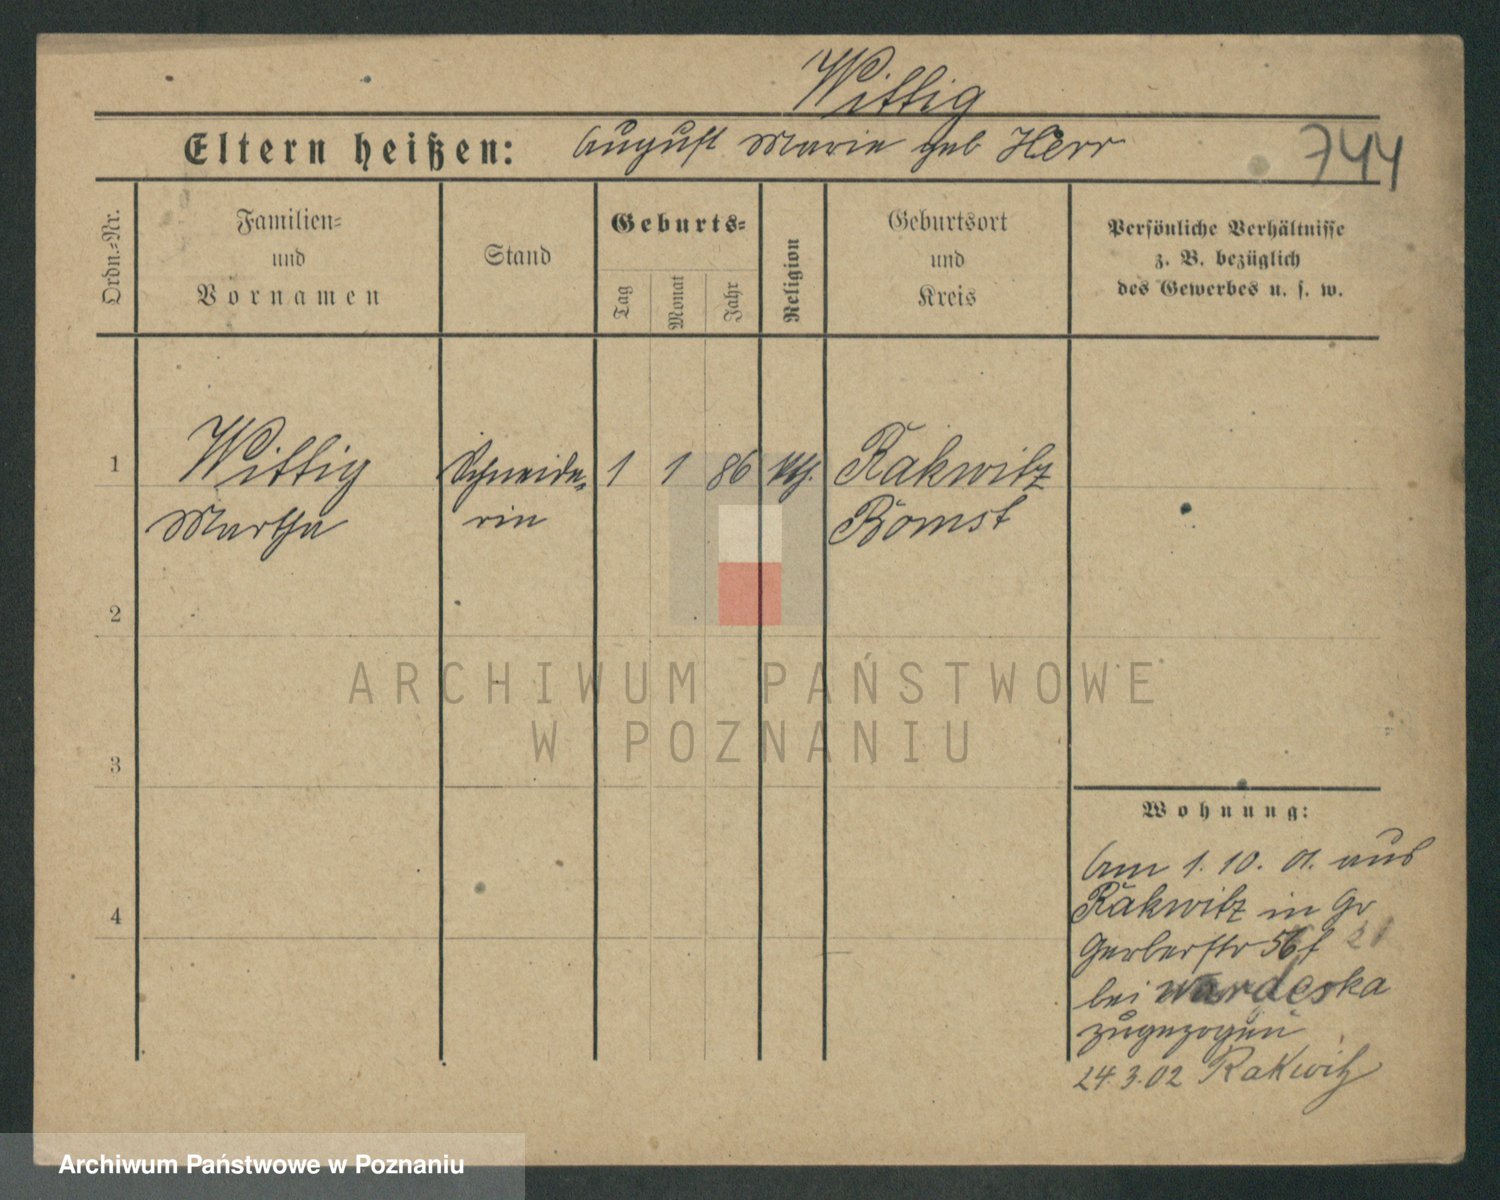 Wittig
Eltern heißen: August Marie geb Herr
744
Ordn.-Nr.
Familien-
und
Vornamen
Stand
Geburts-
Tag
Monat
Jahr
Religion
Geburtsort
und
Kreis
Persönliche Verhältnisse
z. B. bezüglich
des Gewerbes u. s. w.
1 Wittig Schneide- 1 1 86 kth. Rakwitz
Martha rin Bomst
2
3
4
Wohnung:
Am 1. 10. 01. aus
Rakwitz in Gr
Gerberstr 56
bei
zugezogen
24.3.02 Rakwitz
ARCHIWUM PAŃSTWOWE
W POZNANIU
Archiwum Państwowe w Poznaniu